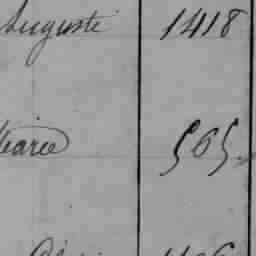 Auguste 1418
Marie 565